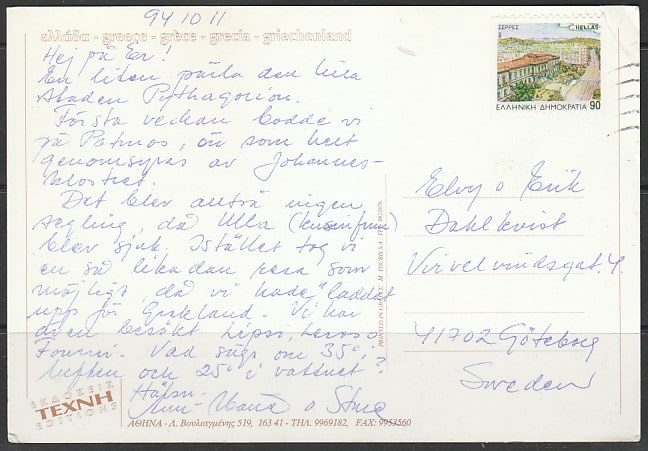 94 10 11
ελλάδα - greece - grèce - grecia - griechenland
Hej på Er!
En liten pärla den lilla
staden Pythagorion.
Första veckan bodde vi
på Patmos, ön som helt
genomsyras av Johannes-
klostret.
Det blev alltså ingen
segling, då Ulla (kusinfrun)
blev sjuk. Istället tog vi
en så likadan resa som
möjligt, då vi hade "laddat
upp för Grekland. Vi har
även besökt Lipsi, Leros o
Fourni. Vad sägs om 35° i
luften och 25° i vattnet?
Hälsn.
o Sture
ΕΚΔΟΣΕΙΣ
ΤΕΧΝΗ
EDITIONS
ΑΘΗΝΑ - Λ. Βουλιαγμένης 519, 163 41 - ΤΗΛ. 9969182, FAX: 9953560
PRINTED IN GREECE
ΣΕΡΡΕΣ
HELLAS
ΕΛΛΗΝΙΚΗ ΔΗΜΟΚΡΑΤΙΑ 90
Elvy o Erik
Dahlkvist
Virvelvindsgat. 4
41702 Göteborg
Sweden